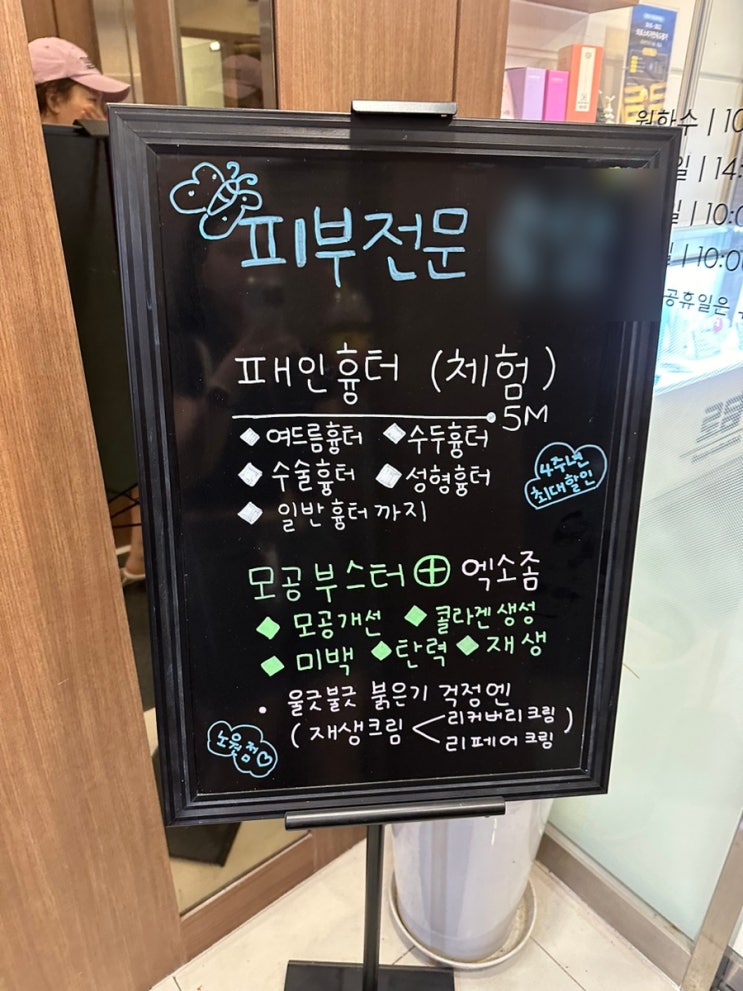 피부전문
패인흉터 (체험)
5M
◆ 여드름흉터 ◆ 수두흉터
◆ 수술흉터 ◆ 성형흉터
◆ 일반흉터까지
4주년
최대할인
모공부스터 ⊕ 엑소좀
◆ 모공개선 ◆ 콜라겐생성
◆ 미백 ◆ 탄력 ◆ 재생
• 울긋불긋 붉은기 걱정엔
(재생크림 < 리커버리크림)
리페어크림
노원점♡
월화수 | 10
일 | 14:
| 10:0
| 10:00
공휴일은